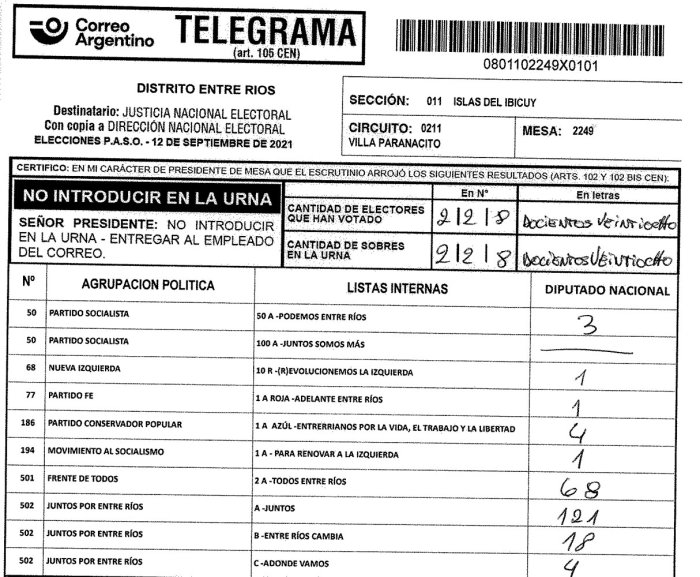 Correo Argentino
TELEGRAMA
(art. 105 CEN)
0801102249X0101
DISTRITO ENTRE RIOS
Destinatario: JUSTICIA NACIONAL ELECTORAL
Con copia a DIRECCIÓN NACIONAL ELECTORAL
ELECCIONES P.A.S.O. - 12 DE SEPTIEMBRE DE 2021
SECCIÓN: 011 ISLAS DEL IBICUY
CIRCUITO: 0211
VILLA PARANACITO
MESA: 2249
CERTIFICO: EN MI CARÁCTER DE PRESIDENTE DE MESA QUE EL ESCRUTINIO ARROJÓ LOS SIGUIENTES RESULTADOS (ARTS. 102 Y 102 BIS CEN):
NO INTRODUCIR EN LA URNA
SEÑOR PRESIDENTE: NO INTRODUCIR
EN LA URNA - ENTREGAR AL EMPLEADO
DEL CORREO.
En Nº En letras
CANTIDAD DE ELECTORES
QUE HAN VOTADO 2 2 8 DOCIENTOS VEINTIOCHO
CANTIDAD DE SOBRES
EN LA URNA 2 2 8 DOCIENTOS VEINTIOCHO
Nº AGRUPACION POLITICA LISTAS INTERNAS DIPUTADO NACIONAL
50 PARTIDO SOCIALISTA 50 A -PODEMOS ENTRE RÍOS 3
50 PARTIDO SOCIALISTA 100 A -JUNTOS SOMOS MÁS —
68 NUEVA IZQUIERDA 10 R -(R)EVOLUCIONEMOS LA IZQUIERDA 1
77 PARTIDO FE 1 A ROJA -ADELANTE ENTRE RÍOS 1
186 PARTIDO CONSERVADOR POPULAR 1 A AZÚL -ENTRERRIANOS POR LA VIDA, EL TRABAJO Y LA LIBERTAD 4
194 MOVIMIENTO AL SOCIALISMO 1 A - PARA RENOVAR A LA IZQUIERDA 1
501 FRENTE DE TODOS 2 A -TODOS ENTRE RÍOS 68
502 JUNTOS POR ENTRE RÍOS A -JUNTOS 121
502 JUNTOS POR ENTRE RÍOS B -ENTRE RÍOS CAMBIA 18
502 JUNTOS POR ENTRE RÍOS C -ADONDE VAMOS 4